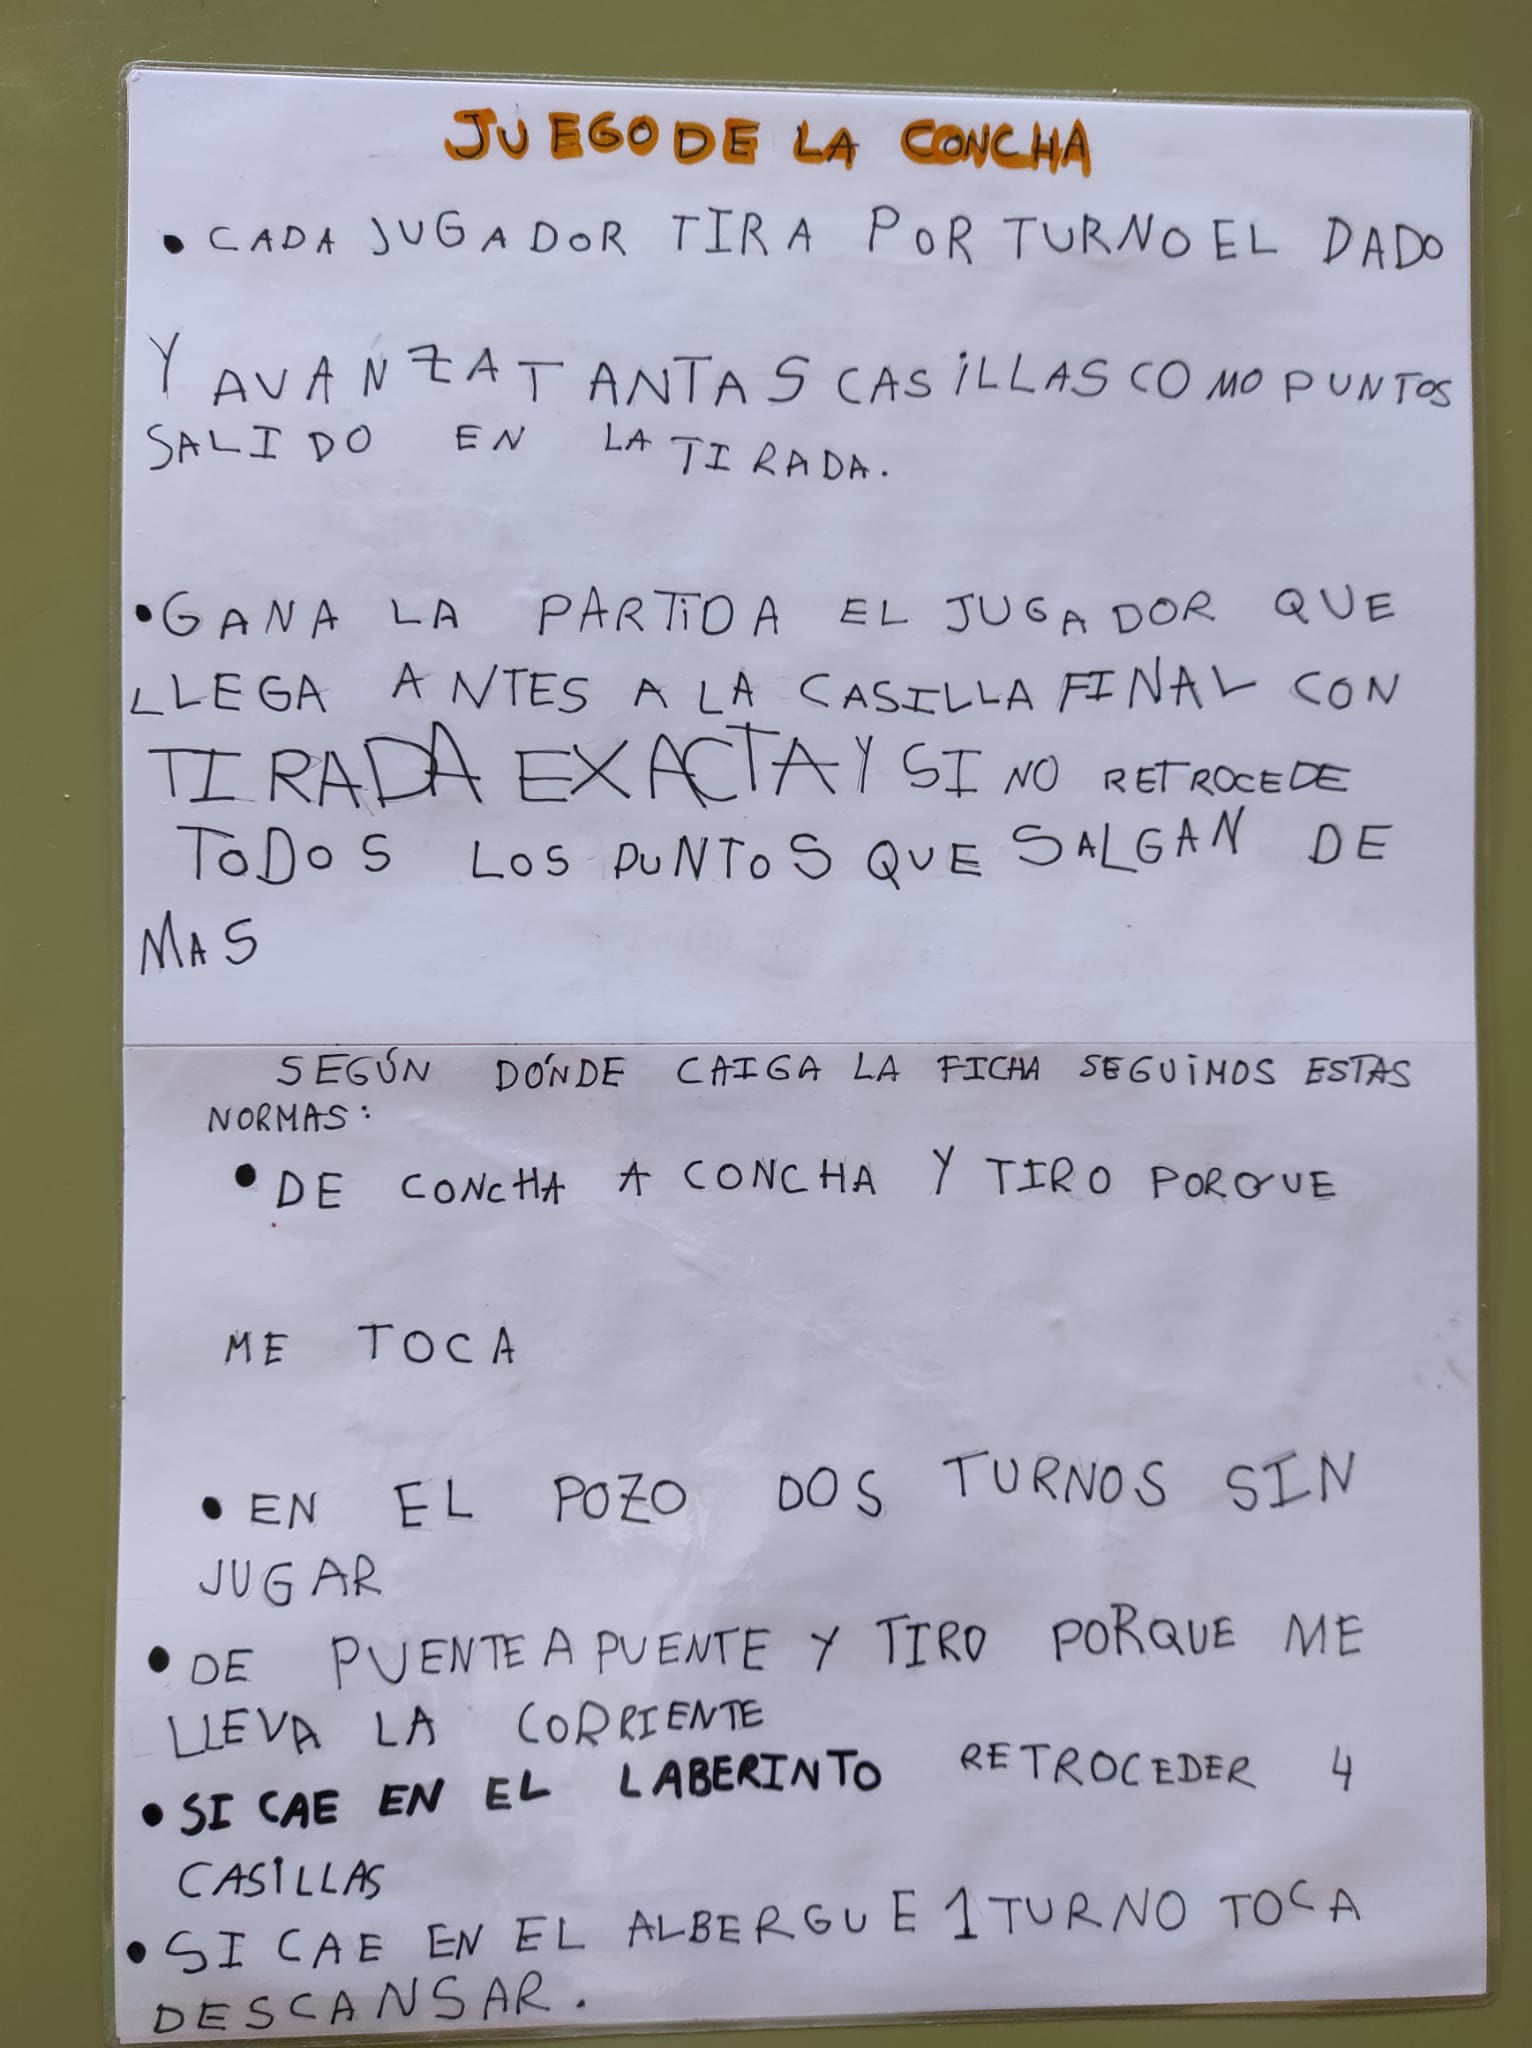 JUEGO DE LA CONCHA
• CADA JUGADOR TIRA POR TURNO EL DADO
Y AVANZA TANTAS CASILLAS COMO PUNTOS
SALIDO EN LA TIRADA.
• GANA LA PARTIDA EL JUGADOR QUE
LLEGA ANTES A LA CASILLA FINAL CON
TIRADA EXACTA Y SI NO RETROCEDE
TODOS LOS PUNTOS QUE SALGAN DE
MAS
SEGÚN DÓNDE CAIGA LA FICHA SEGUIMOS ESTAS
NORMAS:
• DE CONCHA A CONCHA Y TIRO PORQUE
ME TOCA
• EN EL POZO DOS TURNOS SIN
JUGAR
• DE PUENTE A PUENTE Y TIRO PORQUE ME
LLEVA LA CORRIENTE
• SI CAE EN EL LABERINTO RETROCEDER 4
CASILLAS
• SI CAE EN EL ALBERGUE 1 TURNO TOCA
DESCANSAR.